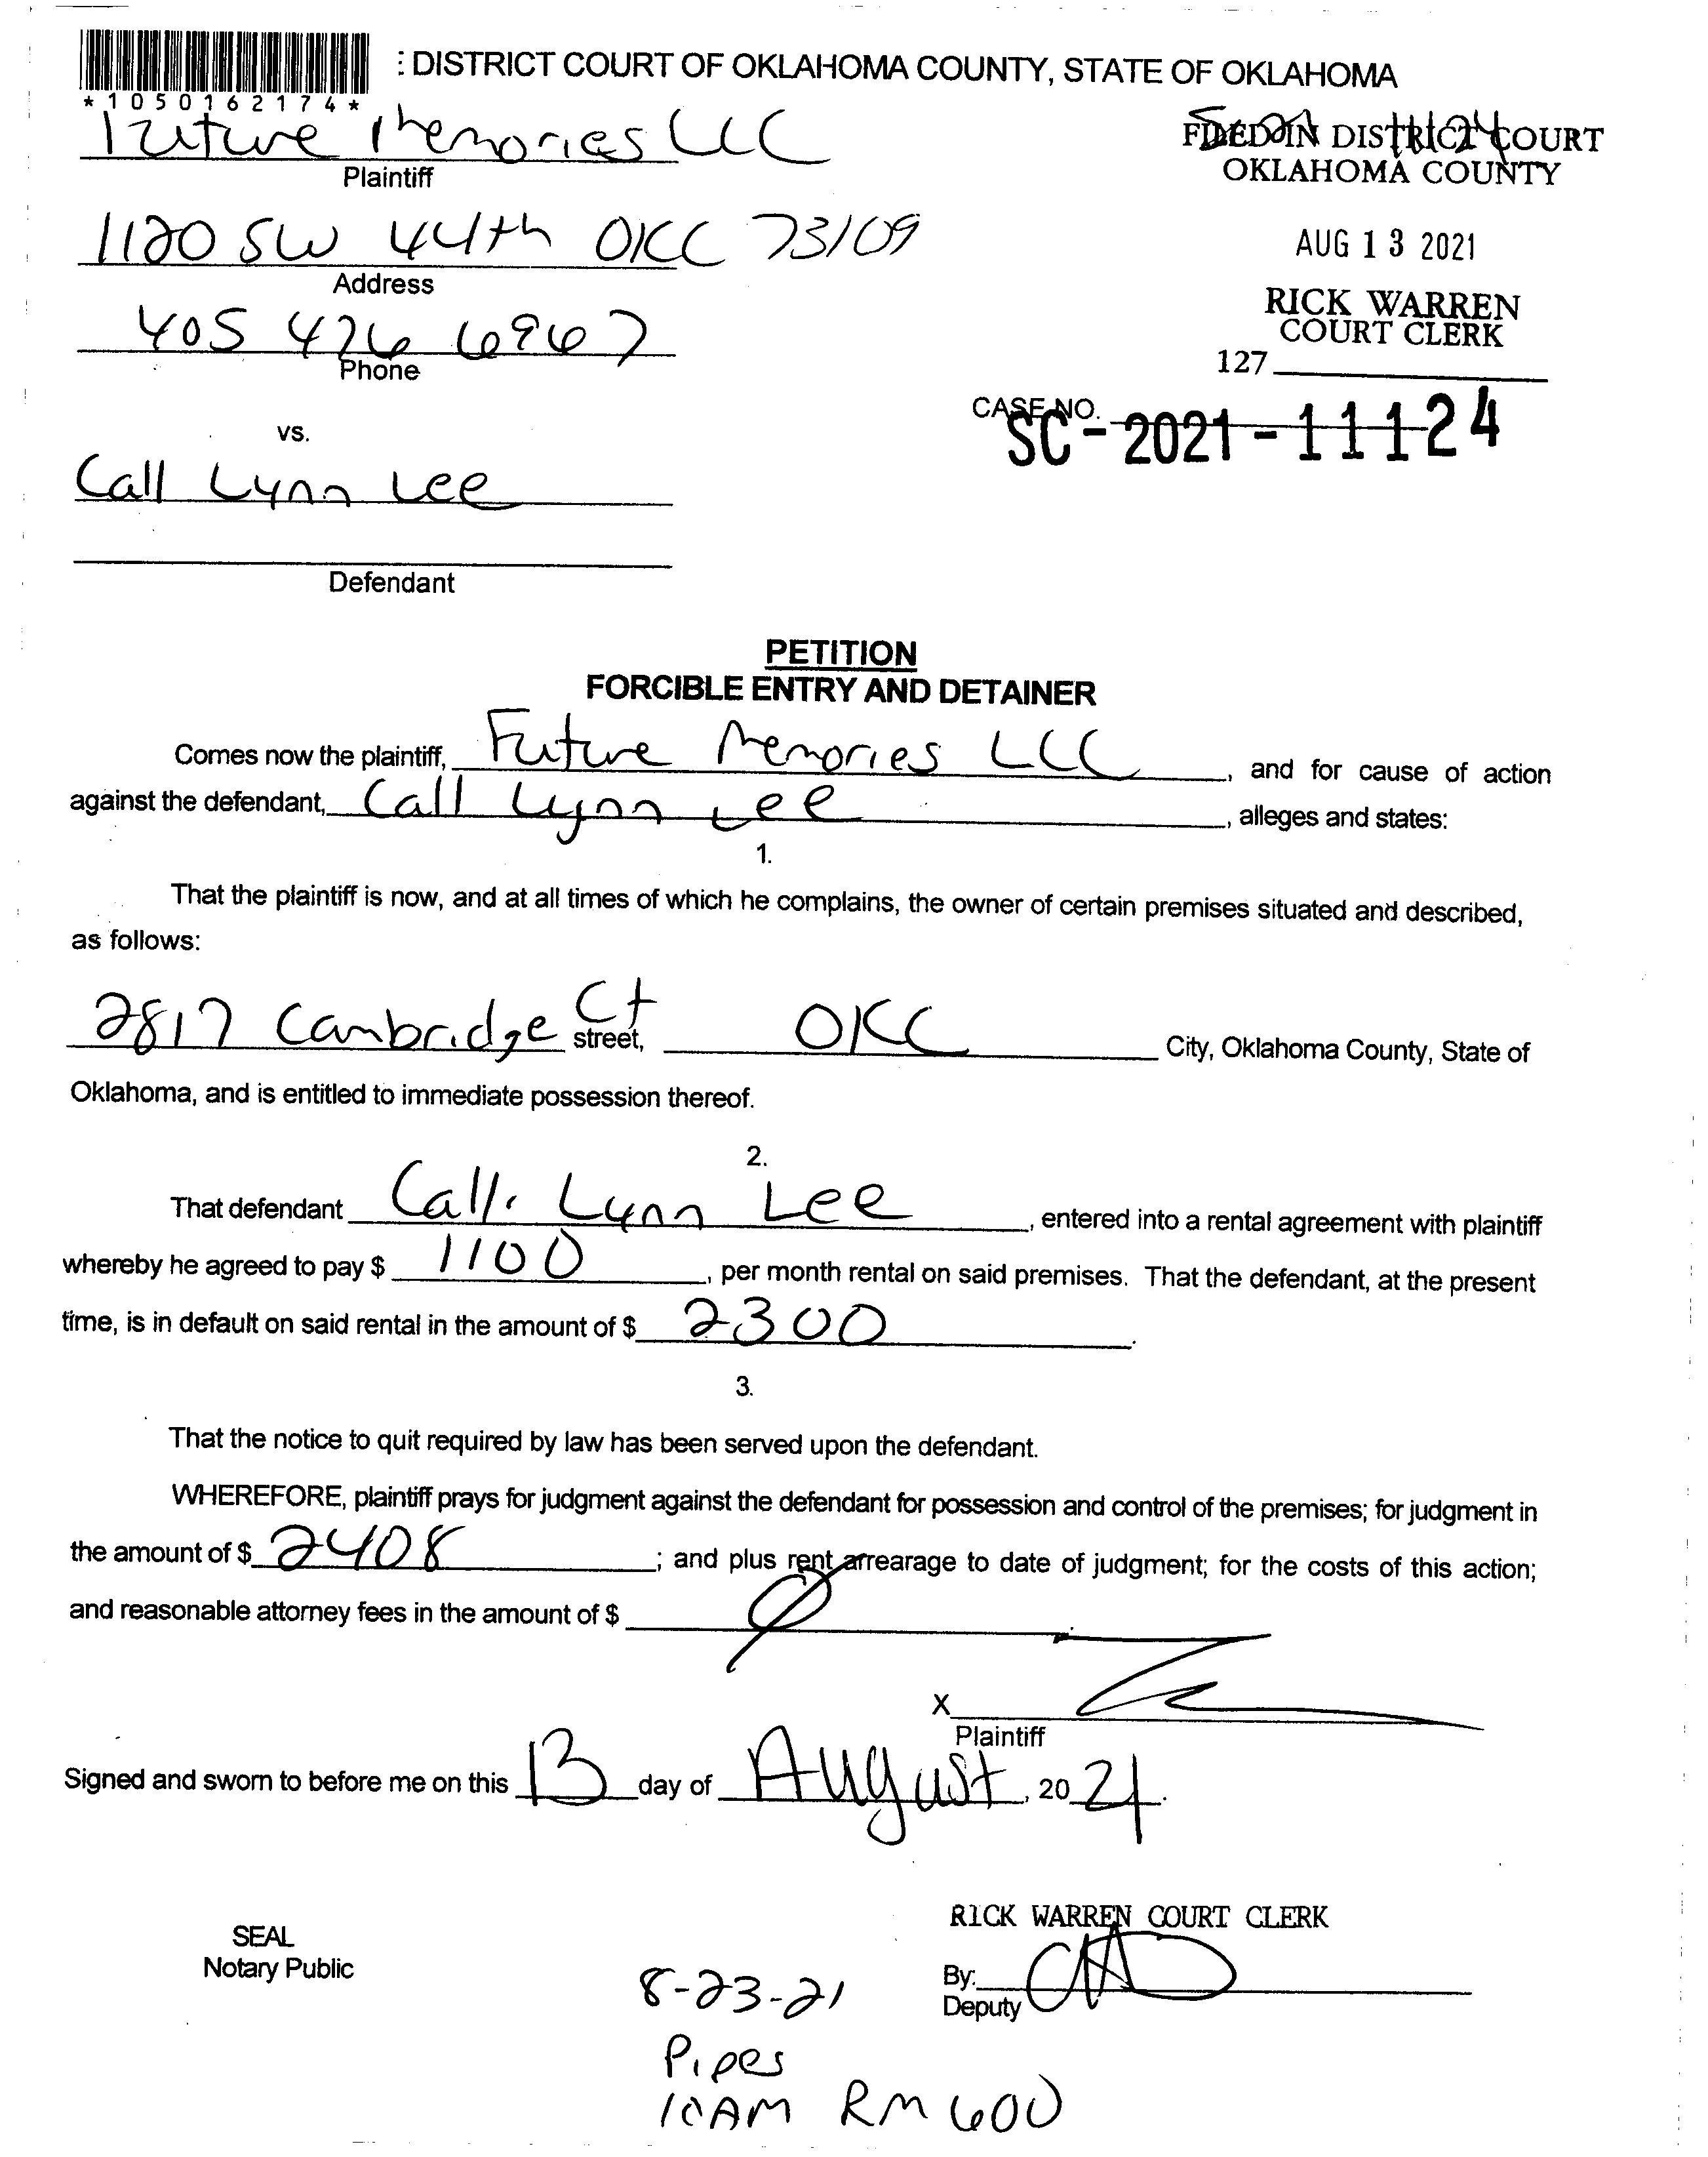 : DISTRICT COURT OF OKLAHOMA COUNTY, STATE OF OKLAHOMA
*1050162174*
Future Memories LLC
Plaintiff
FILED IN DISTRICT COURT
OKLAHOMA COUNTY
1120 SW 44th OKC 73109
Address
AUG 13 2021
405 426 6967
Phone
RICK WARREN
COURT CLERK
127
CASE NO.
SC-2021-11124
vs.
Call Lynn Lee
Defendant
PETITION
FORCIBLE ENTRY AND DETAINER
Comes now the plaintiff, Future Memories LLC, and for cause of action
against the defendant, Call Lynn Lee, alleges and states:
1.
That the plaintiff is now, and at all times of which he complains, the owner of certain premises situated and described,
as follows:
2817 Cambridge Ct street, OKC City, Oklahoma County, State of
Oklahoma, and is entitled to immediate possession thereof.
2.
That defendant Calli Lynn Lee, entered into a rental agreement with plaintiff
whereby he agreed to pay $ 1100, per month rental on said premises. That the defendant, at the present
time, is in default on said rental in the amount of $ 2300.
3.
That the notice to quit required by law has been served upon the defendant.
WHEREFORE, plaintiff prays for judgment against the defendant for possession and control of the premises; for judgment in
the amount of $ 2408; and plus rent arrearage to date of judgment; for the costs of this action;
and reasonable attorney fees in the amount of $ Ø
X
Plaintiff
Signed and sworn to before me on this 13 day of August, 2021.
RICK WARREN COURT CLERK
SEAL
Notary Public
By:
Deputy
8-23-21
Pipes
10AM RM 600